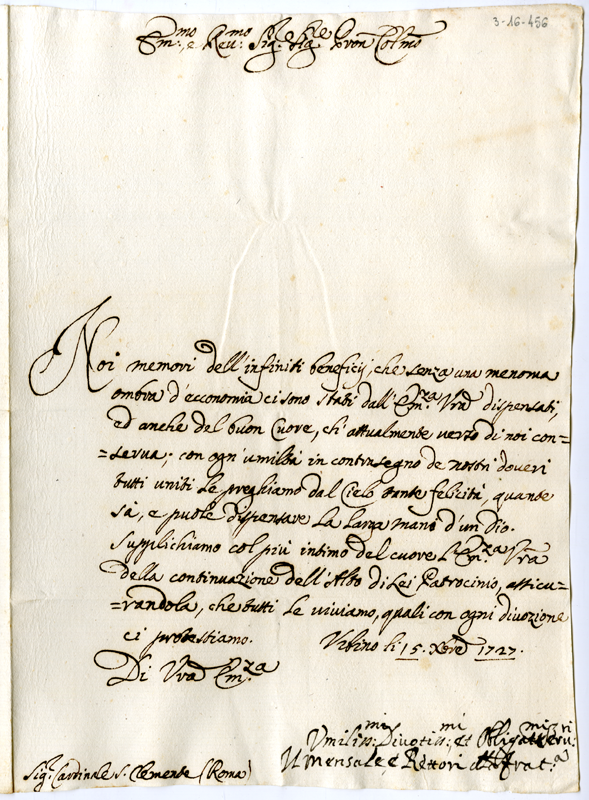 3-16-456
Em:mo e Rev:mo Sig:re Sig:re Pron Colmo
Noi memori dell'infiniti beneficij, che senza una menoma
ombra d'economia ci sono stati dall'Em:za Vra dispensati,
ed anche del buon Cuore, ch'attualmente verso di noi con=
=serva; con ogn'umiltà in contrasegno de nostri doveri
tutti uniti Le preghiamo dal Cielo tante felicità, quante
sà, e puole dispensare La Larga mano d'un Dio.
Supplichiamo col più intimo del cuore L'Em:za Vra
della continuazione dell'Alto di Lei Patrocinio, assicu=
=randola, che tutti Le viviamo, quali con ogni divozione
ci protestiamo. Urbino li 15. Xbre 1727.
Di Vra Em:za
Umiliss:mi Divotiss:mi et Obligatiss:mi Serv:ri
Il Mensale, e Rettori Frat:a
Sig:r Cardinale S. Clemente (Roma)